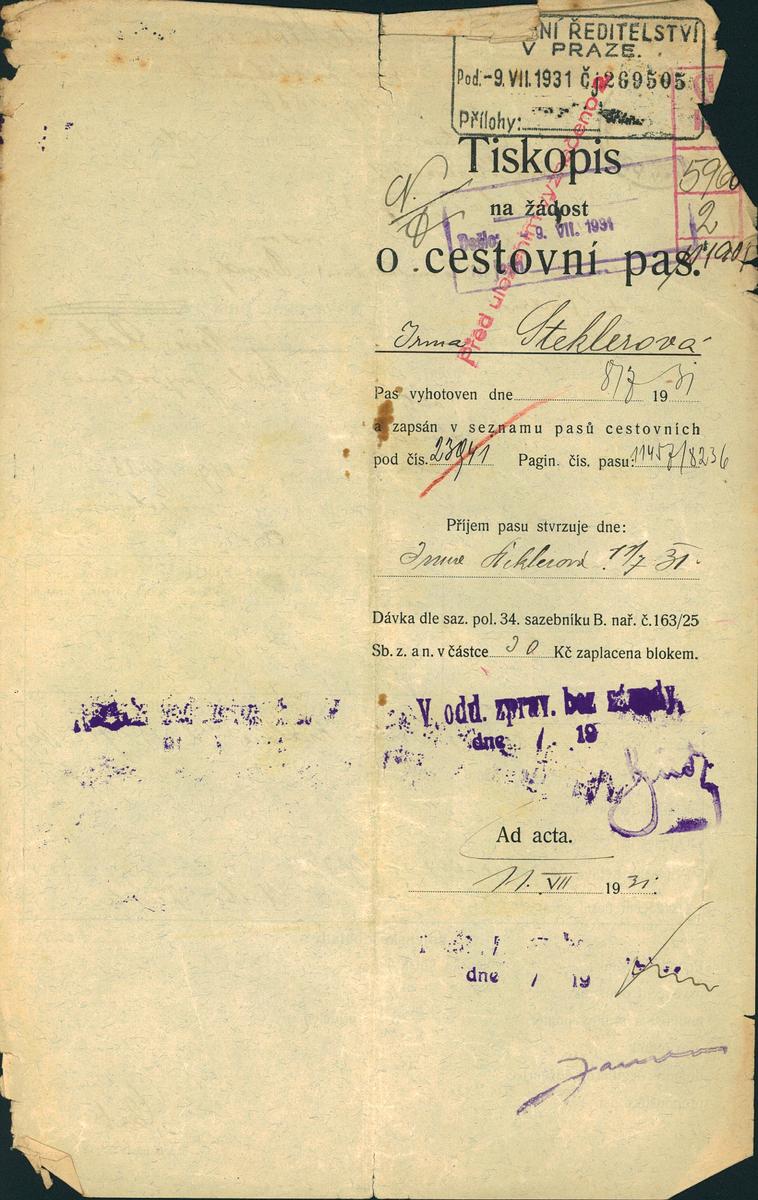 NÍ ŘEDITELSTVÍ
V PRAZE.
Pod.-9.VII.1931 Čj 269505
Přílohy:
Tiskopis
5960
na žádost
2
Došlo: 9. VII. 1931
o cestovní pas.
Před uložením
Irma Steklerová
Pas vyhotoven dne 8/7 1931
a zapsán v seznamu pasů cestovních
pod čís. 23941 Pagin. čís. pasu: 11457/8236
Příjem pasu stvrzuje dne:
Irma Steklerová 11/7 31.
Dávka dle saz. pol. 34. sazebníku B. nař. č. 163/25
Sb. z. a n. v částce 30 Kč zaplacena blokem.
V. odd. zprav. bez závady,
dne / 19
Ad acta.
11. VII 1931.
dne / 19